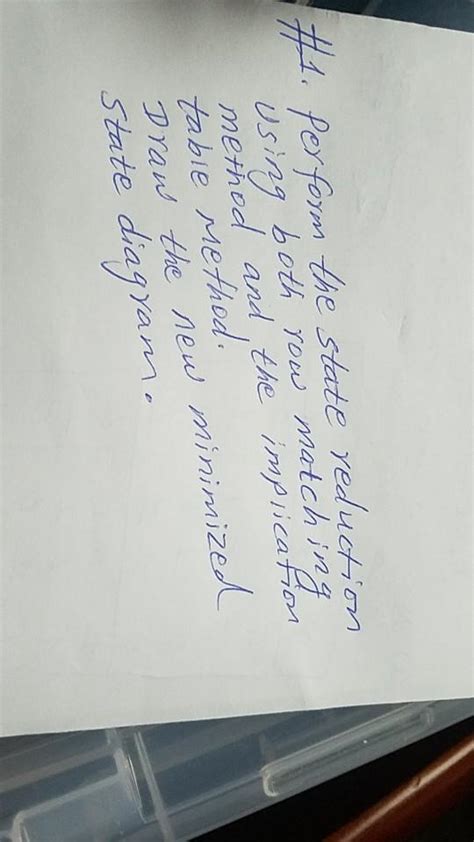 #1. Perform the state reduction
using both row matching
method and the implication
table method.
Draw the new minimized
state diagram.